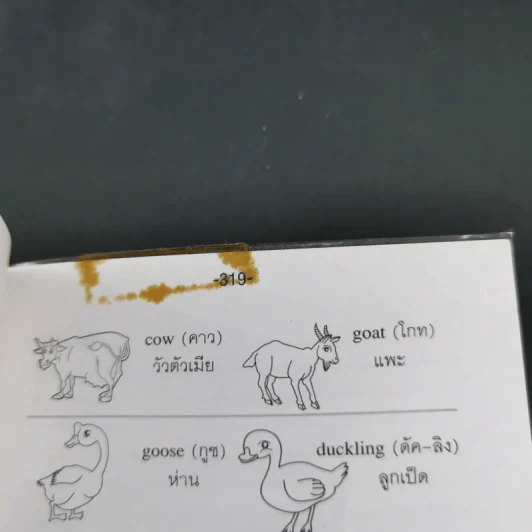 -319-
cow (คาว)
วัวตัวเมีย
goat (โกท)
แพะ
goose (กูซ)
ห่าน
duckling (ดัค-ลิง)
ลูกเป็ด